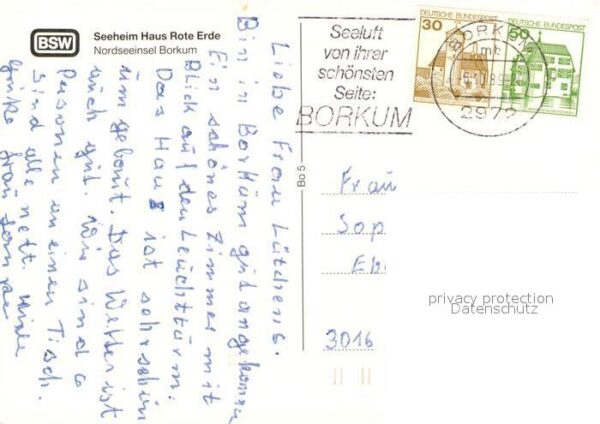 BSW
Seeheim Haus Rote Erde
Nordseeinsel Borkum
Liebe Frau Lütchens.
Bin in Borkum gut angekommen
Ein schönes Zimmer mit
Blick auf den Leuchtturm.
Das Haus ist sehr schön
um gebaut. Das Wetter ist
auch gut. Wir sind 6
Personen an einen Tisch.
sind alle nett. Viele
Grüße Frau
Bo 5
Seeluft
von ihrer
schönsten
Seite:
BORKUM
30
DEUTSCHE BUNDESPOST
50
DEUTSCHE BUNDESPOST
BORKUM
2972
Frau
Sop
3016
privacy protection
Datenschutz